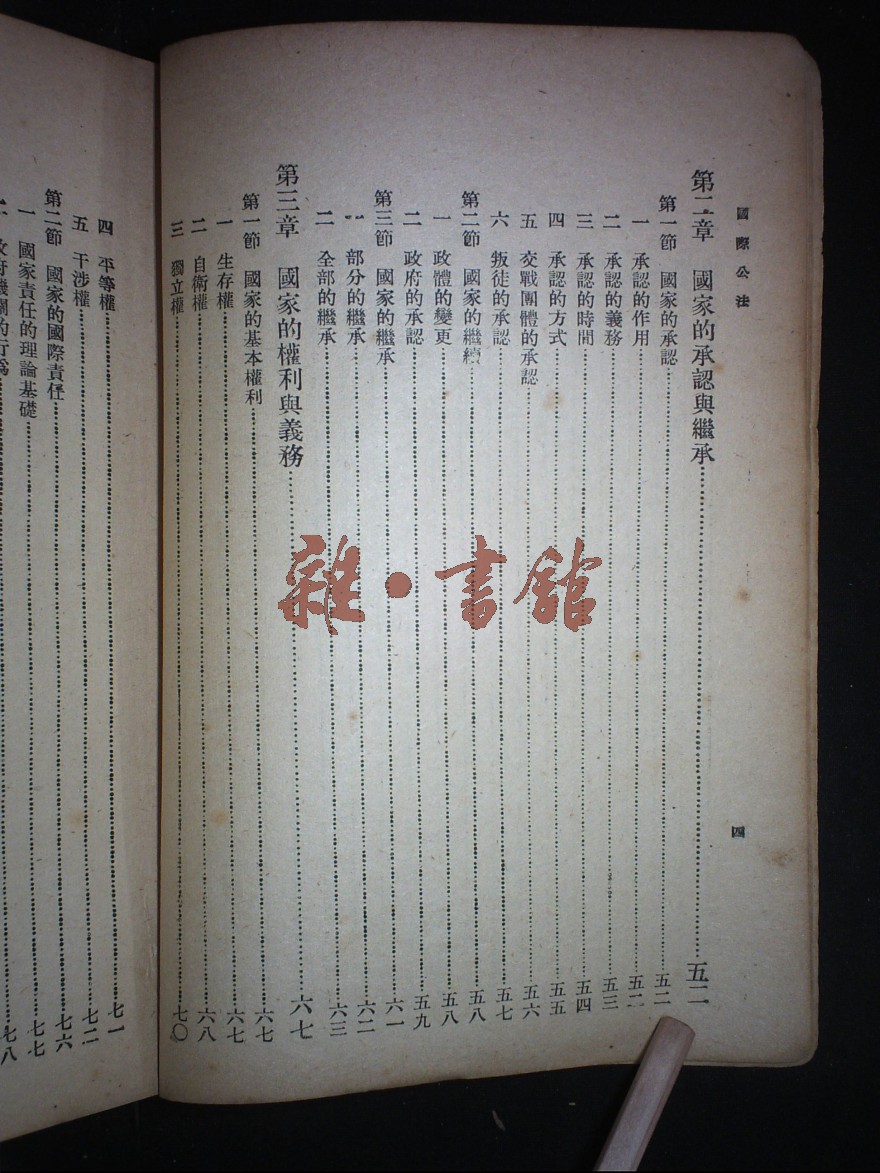 國際公法
四
第二章　國家的承認與繼承……五二
第一節　國家的承認……五二
一　承認的作用……五二
二　承認的義務……五三
三　承認的時間……五四
四　承認的方式……五五
五　交戰團體的承認……五六
六　叛徒的承認……五七
第二節　國家的繼續……五八
一　政體的變更……五八
二　政府的承認……五九
第三節　國家的繼承……六一
一　部分的繼承……六二
二　全部的繼承……六三
第三章　國家的權利與義務……六七
第一節　國家的基本權利……六七
一　生存權……六七
二　自衛權……六八
三　獨立權……七〇
四　平等權……七一
五　干涉權……七二
第二節　國家的國際責任……七六
一　國家責任的理論基礎……七七
政府機關的行為……七八
雜·書館